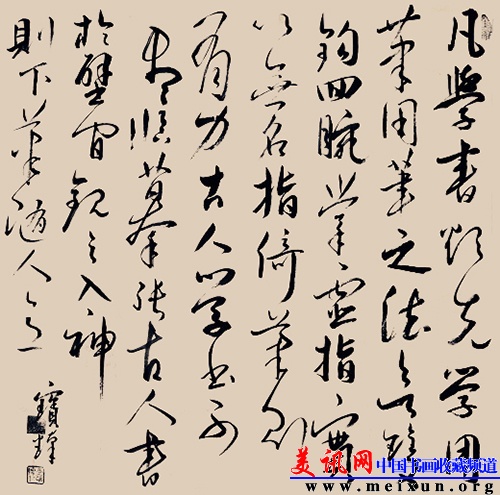 凡學書欲先学用
筆用筆之法欲雙
鉤回腕掌虛指實
以無名指倚筆則
有力古人学書不
盡臨摹張古人書
於壁間觀之入神
則下筆隨人意
寶
美讯网 中国书画收藏频道
www.meixun.org